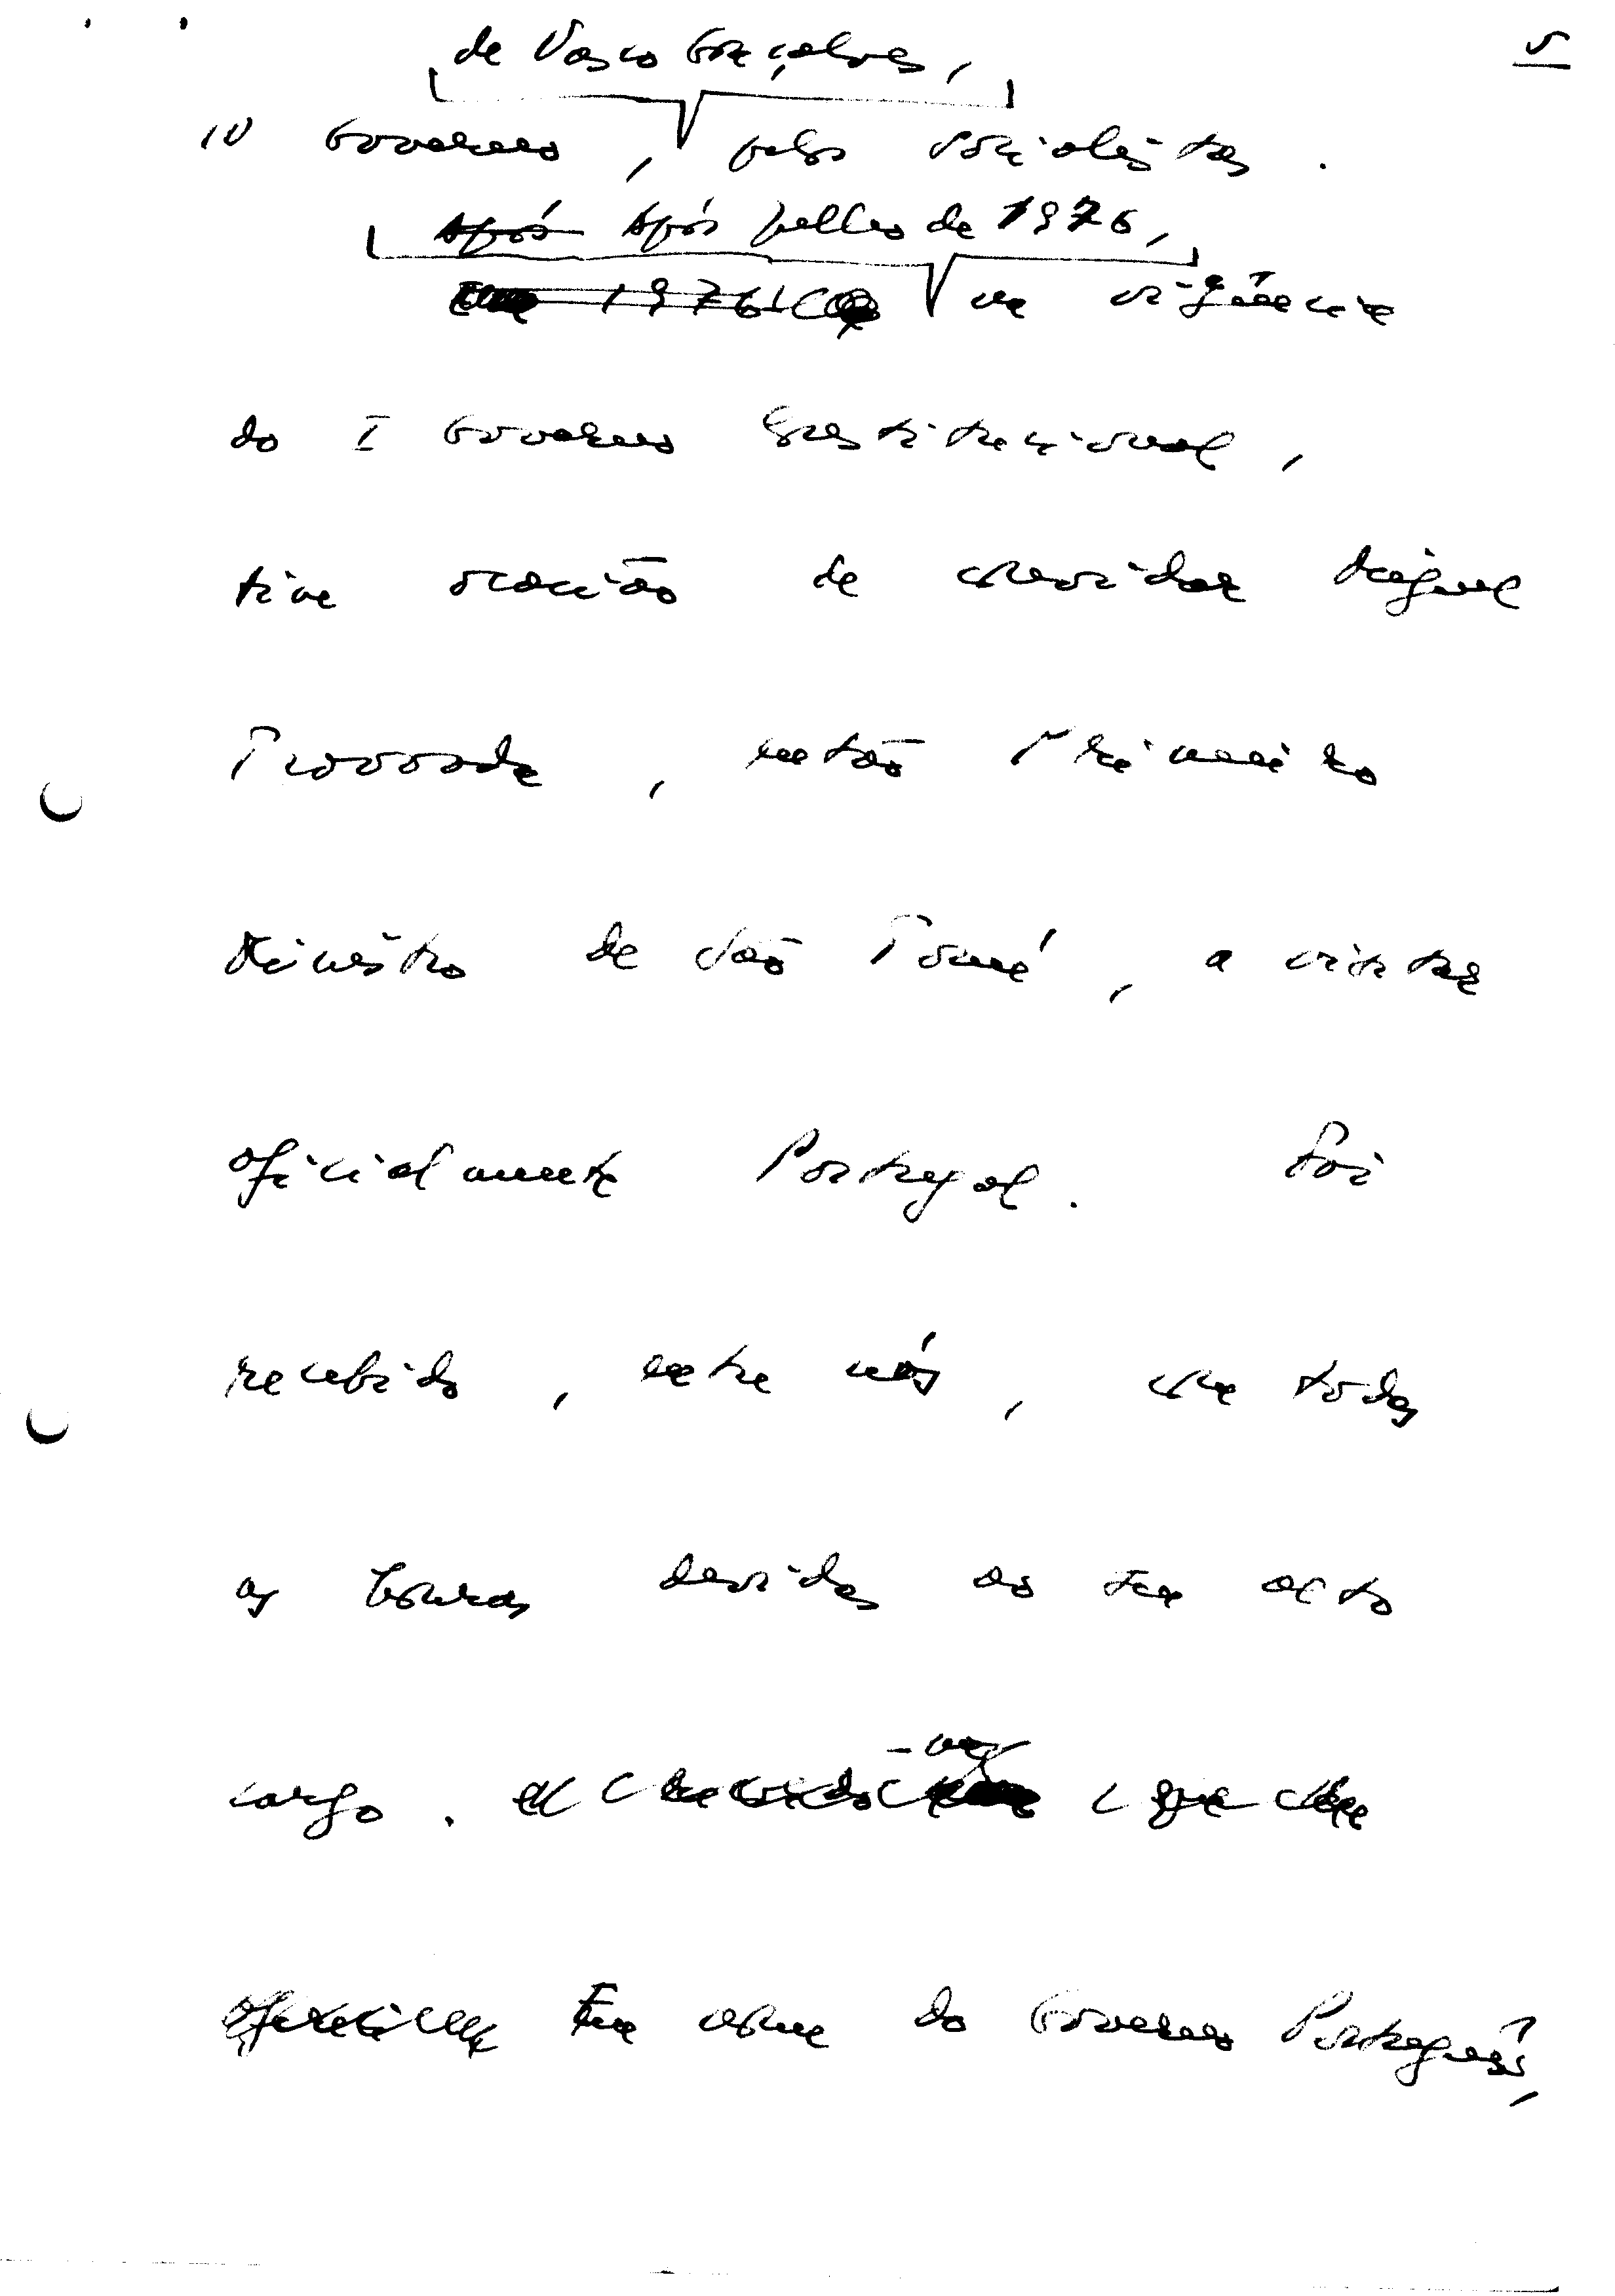 5
de Vasco Gonçalves,
IV Governo, pelos socialistas.
Após Após Julho de 1976,
Em 1976 na vigência
do I Governo Constitucional,
tive ocasião de convidar Miguel
Trovoada, então Primeiro
Ministro de São Tomé, a visitar
oficialmente Portugal. Foi
recebido, entre nós, com todas
as honras devidas ao seu alto
cargo.
Em nome do Governo Português,